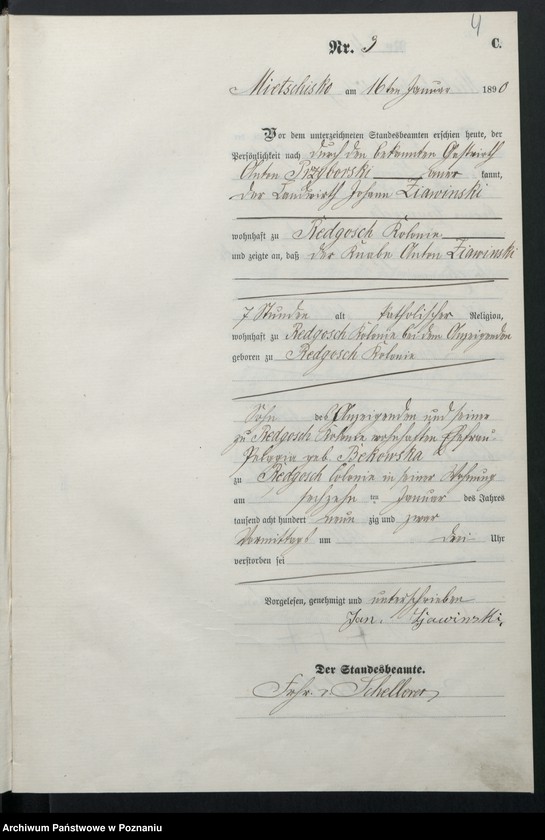 4
Nr. 3 C.
Mietschisko am 16ten Januar 1890
Vor dem unterzeichneten Standesbeamten erschien heute, der
Persönlichkeit nach durch den bekannten Gastwirth
Anton Przyborski aner kannt,
der Landwirth Johann Ziawinski
wohnhaft zu Redgosch Kolonie
und zeigte an, daß der Knabe Anton Ziawinski
7 Stunden alt katholischer Religion,
wohnhaft zu Redgosch Kolonie bei dem Anzeigenden
geboren zu Redgosch Kolonie
Sohn des Anzeigenden und seiner
zu Redgosch Kolonie wohnhaften Ehefrau
Pelagia geb. Bekowska
zu Redgosch Colonie in seiner Wohnung
am sechzehn ten Januar des Jahres
tausend acht hundert neun zig und zwar
Vormittags um drei Uhr
verstorben sei
Vorgelesen, genehmigt und unterschrieben
Jan. Zjawinski.
Der Standesbeamte.
Frhr. v.
Archiwum Państwowe w Poznaniu